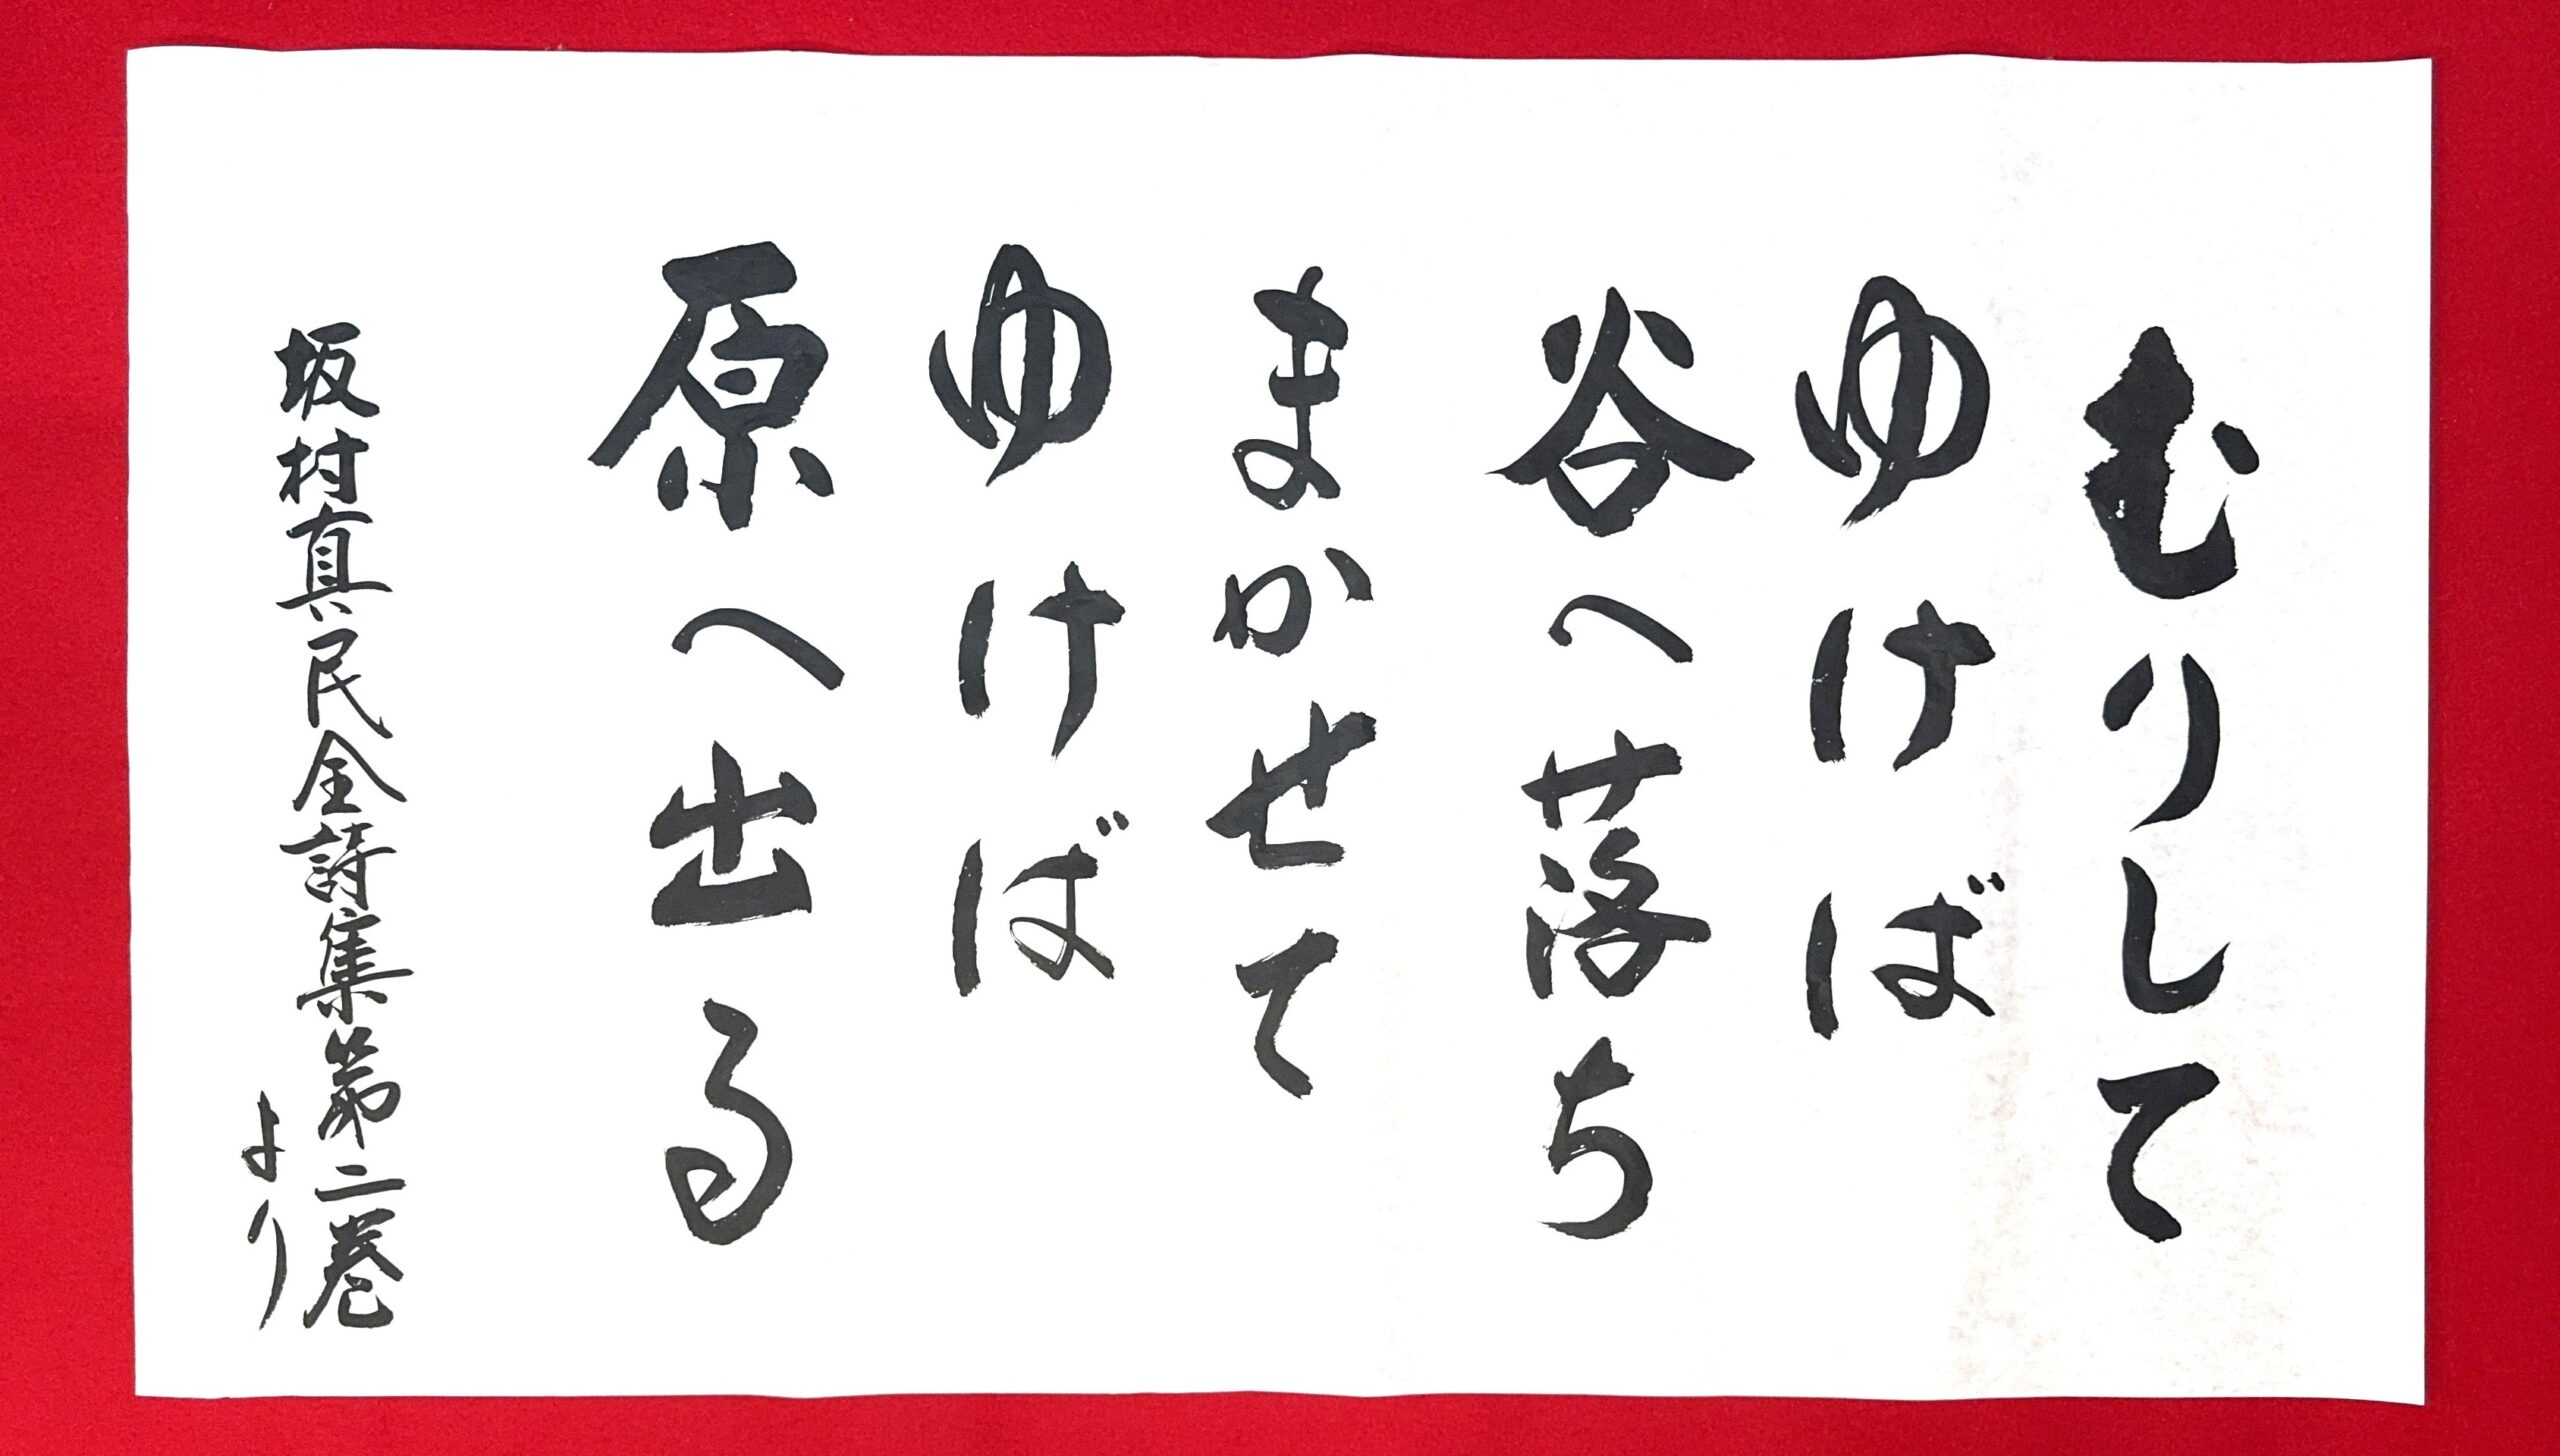 むりして
ゆけば
谷へ落ち
まかせて
ゆけば
原へ出る
坂村真民全詩集第二巻
より